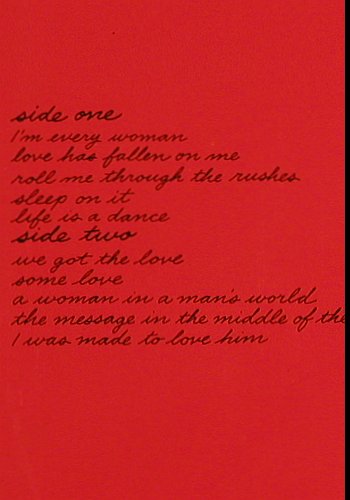 side one
I'm every woman
love has fallen on me
roll me through the rushes
sleep on it
life is a dance
side two
we got the love
some love
a woman in a man's world
the message in the middle of the
I was made to love him